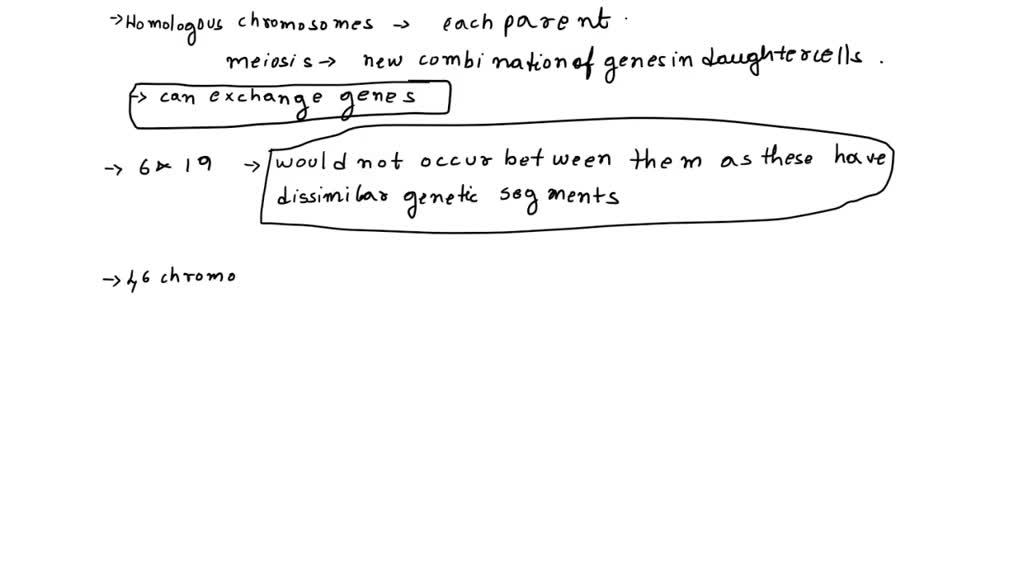 →Homologous chromosomes → each parent.
meiosis → new combination of genes in daughter cells.
→ can exchange genes
→ 6 & 19 → would not occur between them as these have
dissimilar genetic segments
→ 46 chromo